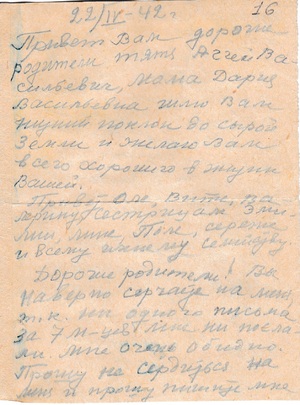 22/IV-42 г
16
Привет Вам дорогие
родители тятя Аггей Ва
сильевич, мама Дария
Васильевна шлю Вам
нижний поклон до сырой
Земли и желаю Вам
всего хорошего в жизни
Вашей.
Привет Вити, Ва
Сестрицам Зи
Поле, Сереже
и всему семейству.
Дорогие родители! Вы
наверно серчаете на меня
т.к. ни одного письма
за 7 м-цев мне ни посла
ли. мне очень обидно.
Прошу не сердиться на
меня и прошу пишите мне